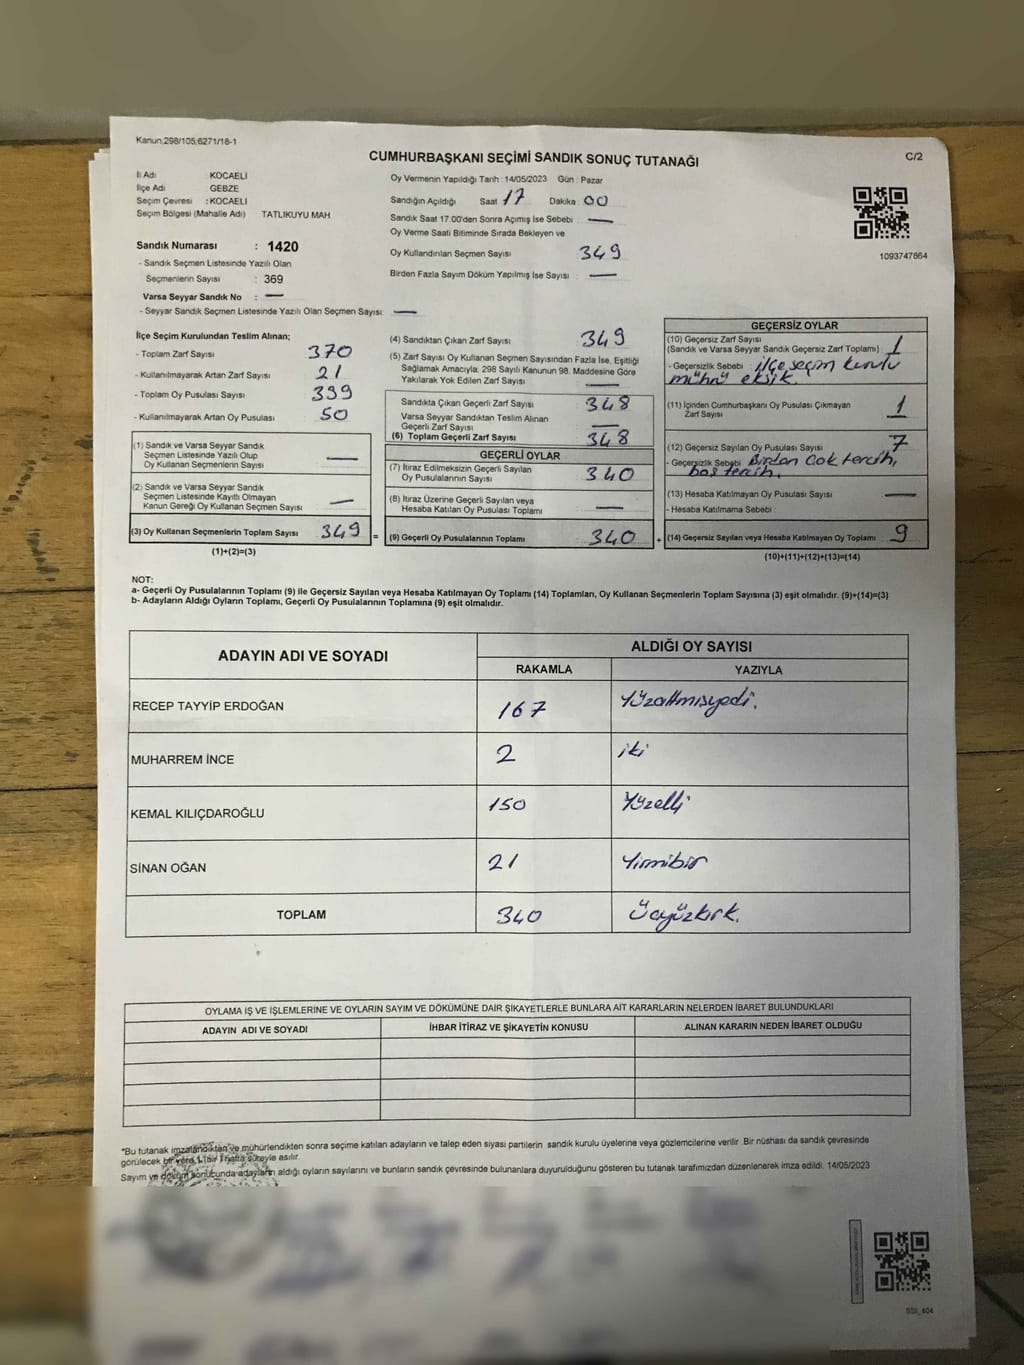 Kanun:298/105;6271/18-1
CUMHURBAŞKANI SEÇİMİ SANDIK SONUÇ TUTANAĞI
C/2
İl Adı : KOCAELİ
İlçe Adı : GEBZE
Seçim Çevresi : KOCAELİ
Seçim Bölgesi (Mahalle Adı) TATLIKUYU MAH
Sandık Numarası : 1420
- Sandık Seçmen Listesinde Yazılı Olan
Seçmenlerin Sayısı : 369
Varsa Seyyar Sandık No : —
- Seyyar Sandık Seçmen Listesinde Yazılı Olan Seçmen Sayısı: —
Oy Vermenin Yapıldığı Tarih : 14/05/2023 Gün : Pazar
Sandığın Açıldığı Saat 17 Dakika 00
Sandık Saat 17:00'den Sonra Açımış İse Sebebi : —
Oy Verme Saati Bitiminde Sırada Bekleyen ve
Oy Kullandırılan Seçmen Sayısı : 349
Birden Fazla Sayım Döküm Yapılmış İse Sayısı : —
1093747664
İlçe Seçim Kurulundan Teslim Alınan;
- Toplam Zarf Sayısı : 370
- Kullanılmayarak Artan Zarf Sayısı : 21
- Toplam Oy Pusulası Sayısı : 399
- Kullanılmayarak Artan Oy Pusulası : 50
(1) Sandık ve Varsa Seyyar Sandık
Seçmen Listesinde Yazılı Olup
Oy Kullanan Seçmenlerin Sayısı : —
(2) Sandık ve Varsa Seyyar Sandık
Seçmen Listesinde Kayıtlı Olmayan
Kanun Gereği Oy Kullanan Seçmen Sayısı : —
(3) Oy Kullanan Seçmenlerin Toplam Sayısı : 349 =
(1)+(2)=(3)
(4) Sandıktan Çıkan Zarf Sayısı : 349
(5) Zarf Sayısı Oy Kullanan Seçmen Sayısından Fazla İse, Eşitliği
Sağlamak Amacıyla, 298 Sayılı Kanunun 98. Maddesine Göre
Yakılarak Yok Edilen Zarf Sayısı : —
Sandıkta Çıkan Geçerli Zarf Sayısı : 348
Varsa Seyyar Sandıktan Teslim Alınan
Geçerli Zarf Sayısı : —
(6) Toplam Geçerli Zarf Sayısı : 348
GEÇERLİ OYLAR
(7) İtiraz Edilmeksizin Geçerli Sayılan
Oy Pusulalarının Sayısı : 340
(8) İtiraz Üzerine Geçerli Sayılan veya
Hesaba Katılan Oy Pusulası Toplamı : —
(9) Geçerli Oy Pusulalarının Toplamı : 340 +
GEÇERSİZ OYLAR
(10) Geçersiz Zarf Sayısı
(Sandık ve Varsa Seyyar Sandık Geçersiz Zarf Toplamı) : 1
- Geçersizlik Sebebi : ilçe seçim kurulu
mührü eksik.
(11) İçinden Cumhurbaşkanı Oy Pusulası Çıkmayan
Zarf Sayısı : 1
(12) Geçersiz Sayılan Oy Pusulası Sayısı : 7
- Geçersizlik Sebebi : Birden Çok tercih,
boş tercih.
(13) Hesaba Katılmayan Oy Pusulası Sayısı : —
- Hesaba Katılmama Sebebi :
(14) Geçersiz Sayılan veya Hesaba Katılmayan Oy Toplamı : 9
(10)+(11)+(12)+(13)=(14)
NOT:
a- Geçerli Oy Pusulalarının Toplamı (9) ile Geçersiz Sayılan veya Hesaba Katılmayan Oy Toplamı (14) Toplamları, Oy Kullanan Seçmenlerin Toplam Sayısına (3) eşit olmalıdır. (9)+(14)=(3)
b- Adayların Aldığı Oyların Toplamı, Geçerli Oy Pusulalarının Toplamına (9) eşit olmalıdır.
ADAYIN ADI VE SOYADI
ALDIĞI OY SAYISI
RAKAMLA YAZIYLA
RECEP TAYYİP ERDOĞAN 167 Yüzaltmışyedi.
MUHARREM İNCE 2 iki
KEMAL KILIÇDAROĞLU 150 Yüzelli
SİNAN OĞAN 21 Yirmibir
TOPLAM 340 Üçyüzkırk.
OYLAMA İŞ VE İŞLEMLERİNE VE OYLARIN SAYIM VE DÖKÜMÜNE DAİR ŞİKAYETLERLE BUNLARA AİT KARARLARIN NELERDEN İBARET BULUNDUKLARI
ADAYIN ADI VE SOYADI İHBAR İTİRAZ VE ŞİKAYETİN KONUSU ALINAN KARARIN NEDEN İBARET OLDUĞU
*Bu tutanak imzalandıktan ve mühürlendikten sonra seçime katılan adayların ve talep eden siyasi partilerin sandık kurulu üyelerine veya gözlemcilerine verilir. Bir nüshası da sandık çevresinde
görülecek bir yere 1 (bir) hafta süreyle asılır.
Sayım ve döküm sonucunda adayların aldığı oyların sayılarını ve bunların sandık çevresinde bulunanlara duyurulduğunu gösteren bu tutanak tarafımızdan düzenlenerek imza edildi. 14/05/2023